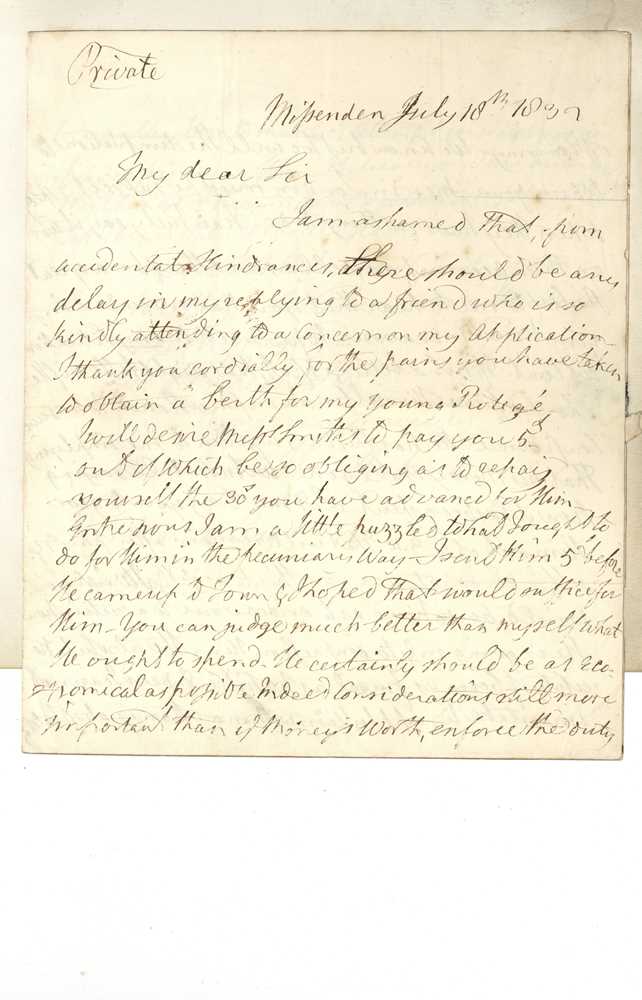 Private
Missenden July 18th 1832
My dear Sir
I am ashamed that, from
accidental Hindrances, there should be any
delay in my replying to a friend who is so
kindly attending to a Concern on my Application
I thank you cordially for the pains you have taken
to obtain a berth for my young Protegé
I will desire Messrs Smiths to pay you 5£
out of which be so obliging as to repay
yourself the 30s you have advanced for Him
Entre nous I am a little puzzled what I ought to
do for Him in the pecuniary Way - I sent Him 5£ before
He came up to Town & I hoped that would suffice for
Him - You can judge much better than myself what
He ought to spend - He certainly should be as eco-
nomical as possible Indeed Considerations still more
important than of Money's Worth, enforce the duty